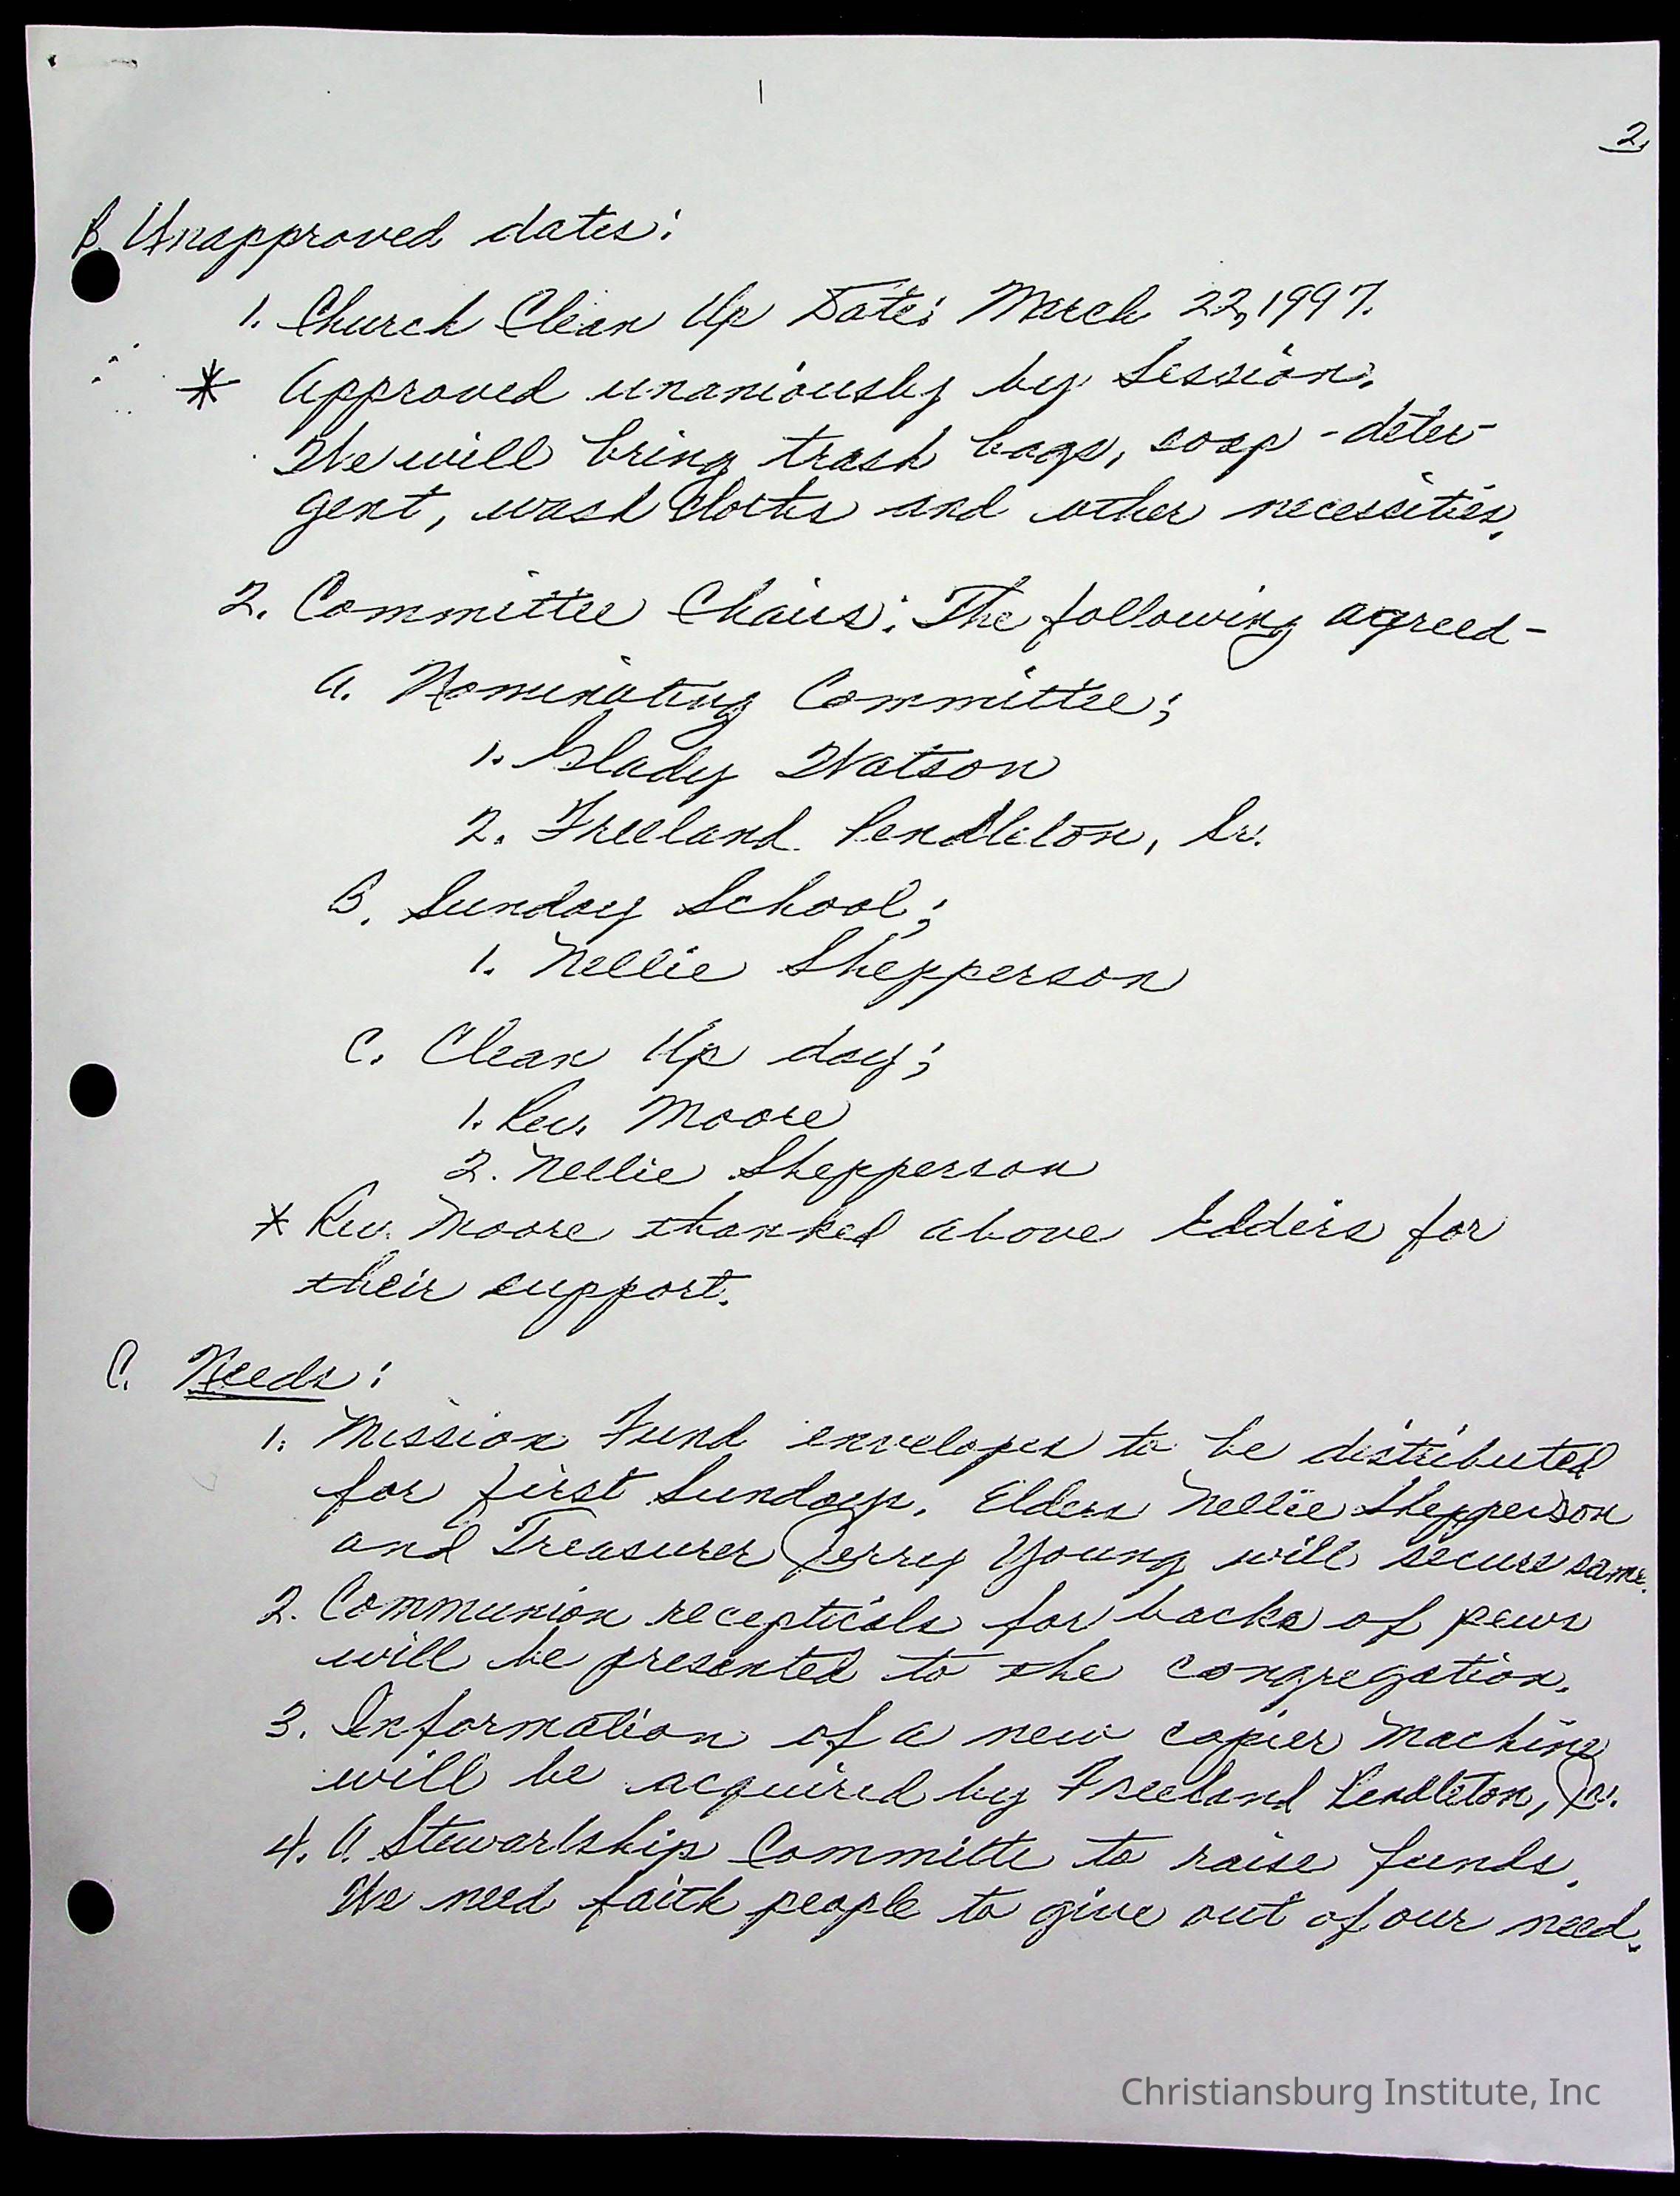 2.
B. Unapproved dates:
1. Church Clean Up Date: March 22, 1997.
* Approved unaniously by Session.
We will bring trash bags, soap - deter-
gent, wash cloths and other necessities.
2. Committee Chairs: The following agreed -
A. Nominating Committee;
1. Glady Watson
2. Freeland Pendleton, Sr.
B. Sunday School;
1. Nellie Shepperson
C. Clean Up day;
1. Rev. Moore
2. Nellie Shepperson
* Rev. Moore thanked above Elders for
their support.
C. Needs:
1. Mission Fund envelopes to be distributed
for first Sundays. Elders Nellie Shepperson
and Treasurer Jerry Young will secure same.
2. Communion recepticals for backs of pews
will be presented to the congregation.
3. Information of a new copier machine
will be acquired by Freeland Pendleton, Jr.
4. A Stewartship Committe to raise funds.
We need faith people to give out of our need.
Christiansburg Institute, Inc